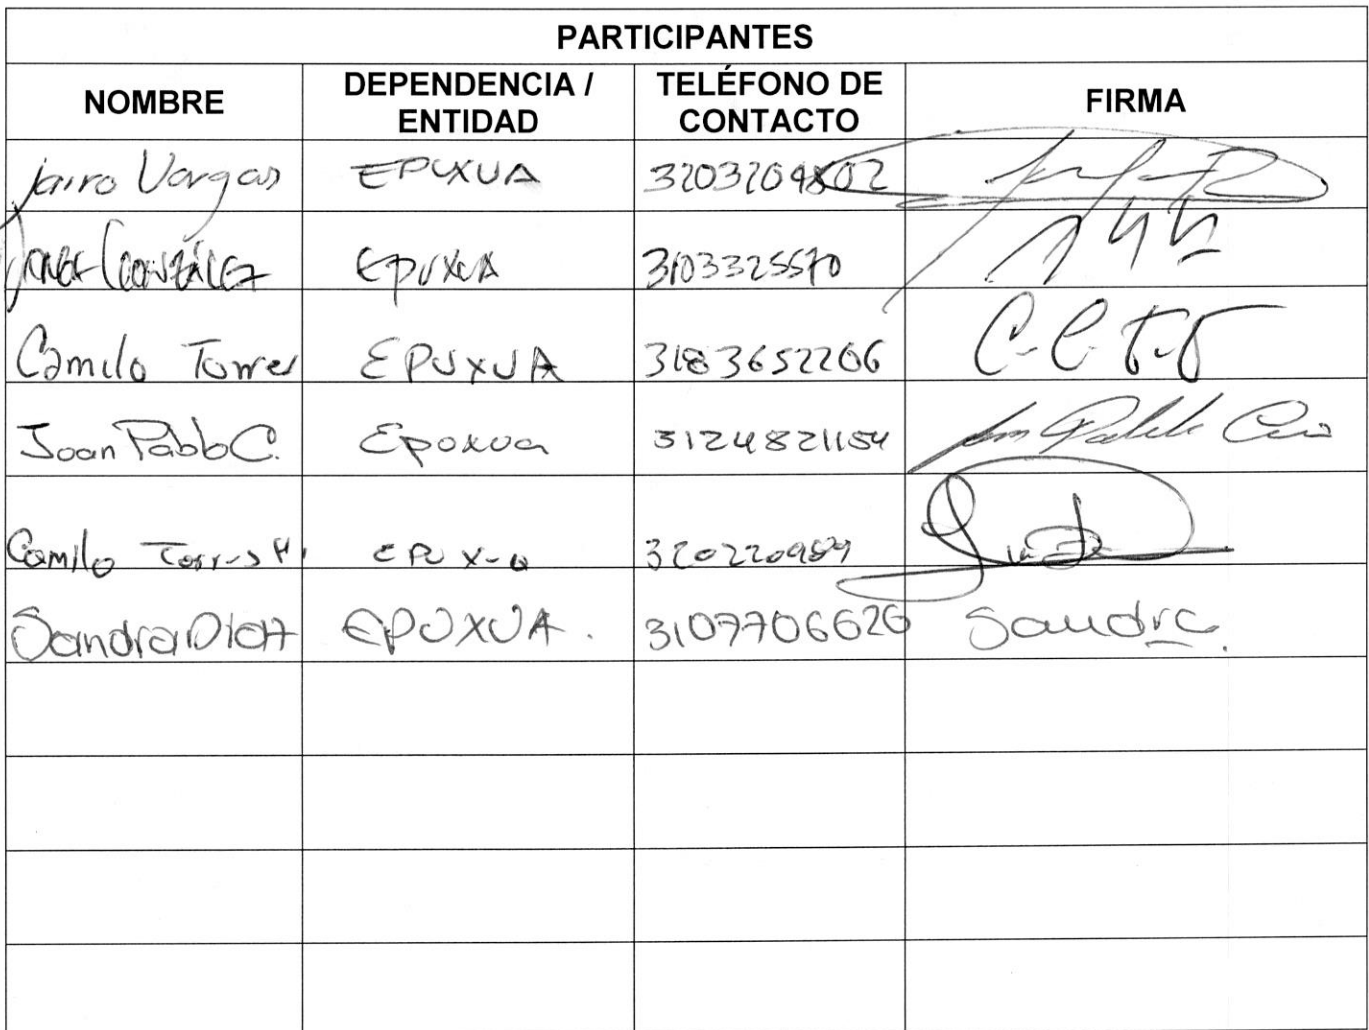 PARTICIPANTES
NOMBRE DEPENDENCIA / ENTIDAD TELÉFONO DE CONTACTO FIRMA
Jairo Vargas EPUXUA
González EPUXUA 3103325570
Camilo Torres EPUXUA 3183652206
Joan Pablo C. Epuxua 3124821154
Camilo Torres H. 320220989
Sandra Diaz EPUXUA. 3107706626 Sandra